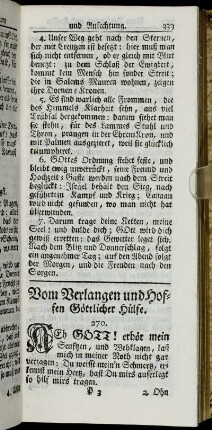 und Anfechtung. 339
4. Unser Weg geht nach den Sternen,
der mit Creutzen ist besetzt: hier muß man
sich nicht entfernen, ob er gleich mit Blut
benetzt: zu dem Schloß der Ewigkeit,
kommt kein Mensch hin sonder Streit;
die in Salems Mauren wohnen, zeigen
ihre Dornen-Cronen.
5. Es sind warlich alle Frommen, die
des Himmels Klarheit sehn, aus viel
Trübsal hergekommen: darum siehet man
sie stehn, für des Lammes Stuhl und
Thron, prangen in der Ehren-Cron, und
mit Palmen ausgezieret, weil sie glücklich
triumphiret.
6. GOttes Ordnung stehet feste, und
bleibt ewig unverrückt, seine Freund und
Hochzeit-Gäste werden nach dem Streit
beglückt: Israel behält den Sieg, nach
geführtem Kampf und Krieg; Canaan
wird nicht gefunden, wo man nicht hat
überwunden.
7. Darum trage deine Ketten, meine
Seel! und dulde dich; GOtt wird dich
gewiß erretten; das Gewitter leget sich.
Nach dem Blitz und Donnerschlag, folgt
ein angenehmer Tag; auf den Abend folgt
der Morgen, und die Freuden nach den
Sorgen.
Vom Verlangen und Hof-
fen Göttlicher Hülfe.
270.
ACh GOTT! erhör mein
Seufzen, und Wehklagen, laß
mich in meiner Noth nicht gar
verzagen; Du weist mein'n Schmertz, er-
kennst mein Hertz, hast Du mirs aufgelegt
so hilf mirs tragen.
P 3 2. Ohn